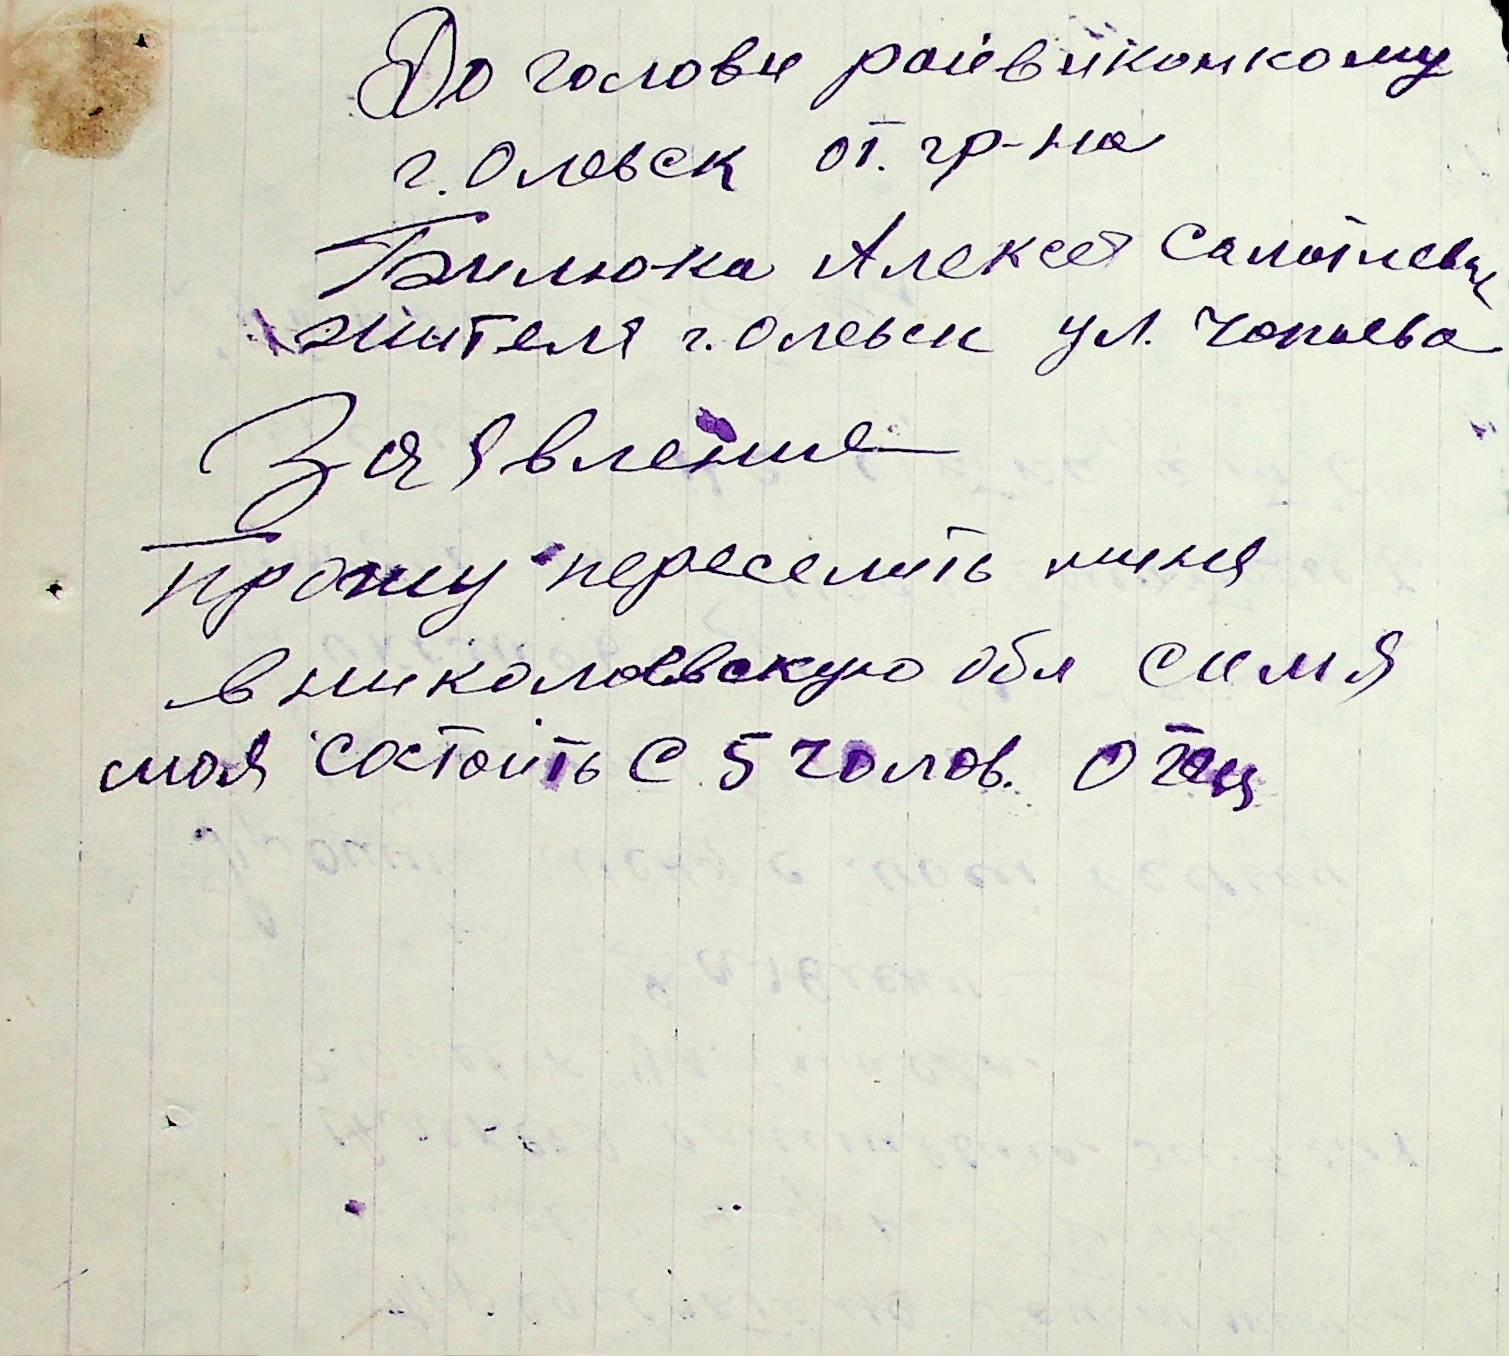 До голови райвиконкому
г. Олевск от. гр-на
Билюка Алексей
жителя г. Олевск ул. Чопаева
Заявление
Прошу переселить миня
в николаевскую обл симя
моя состоить с 5 голов. отец